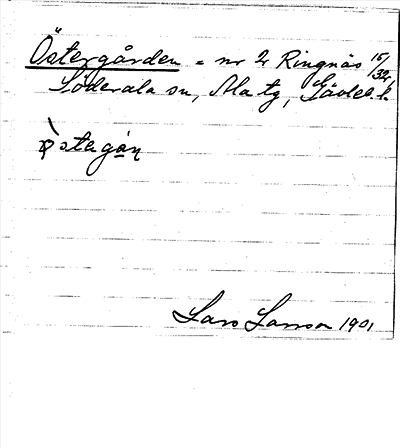 Östergården = nr 2 Ringnäs 15/32
Söderala sn, Ala tg, Gävleb. l.
östagán
Lars Larsson 1901